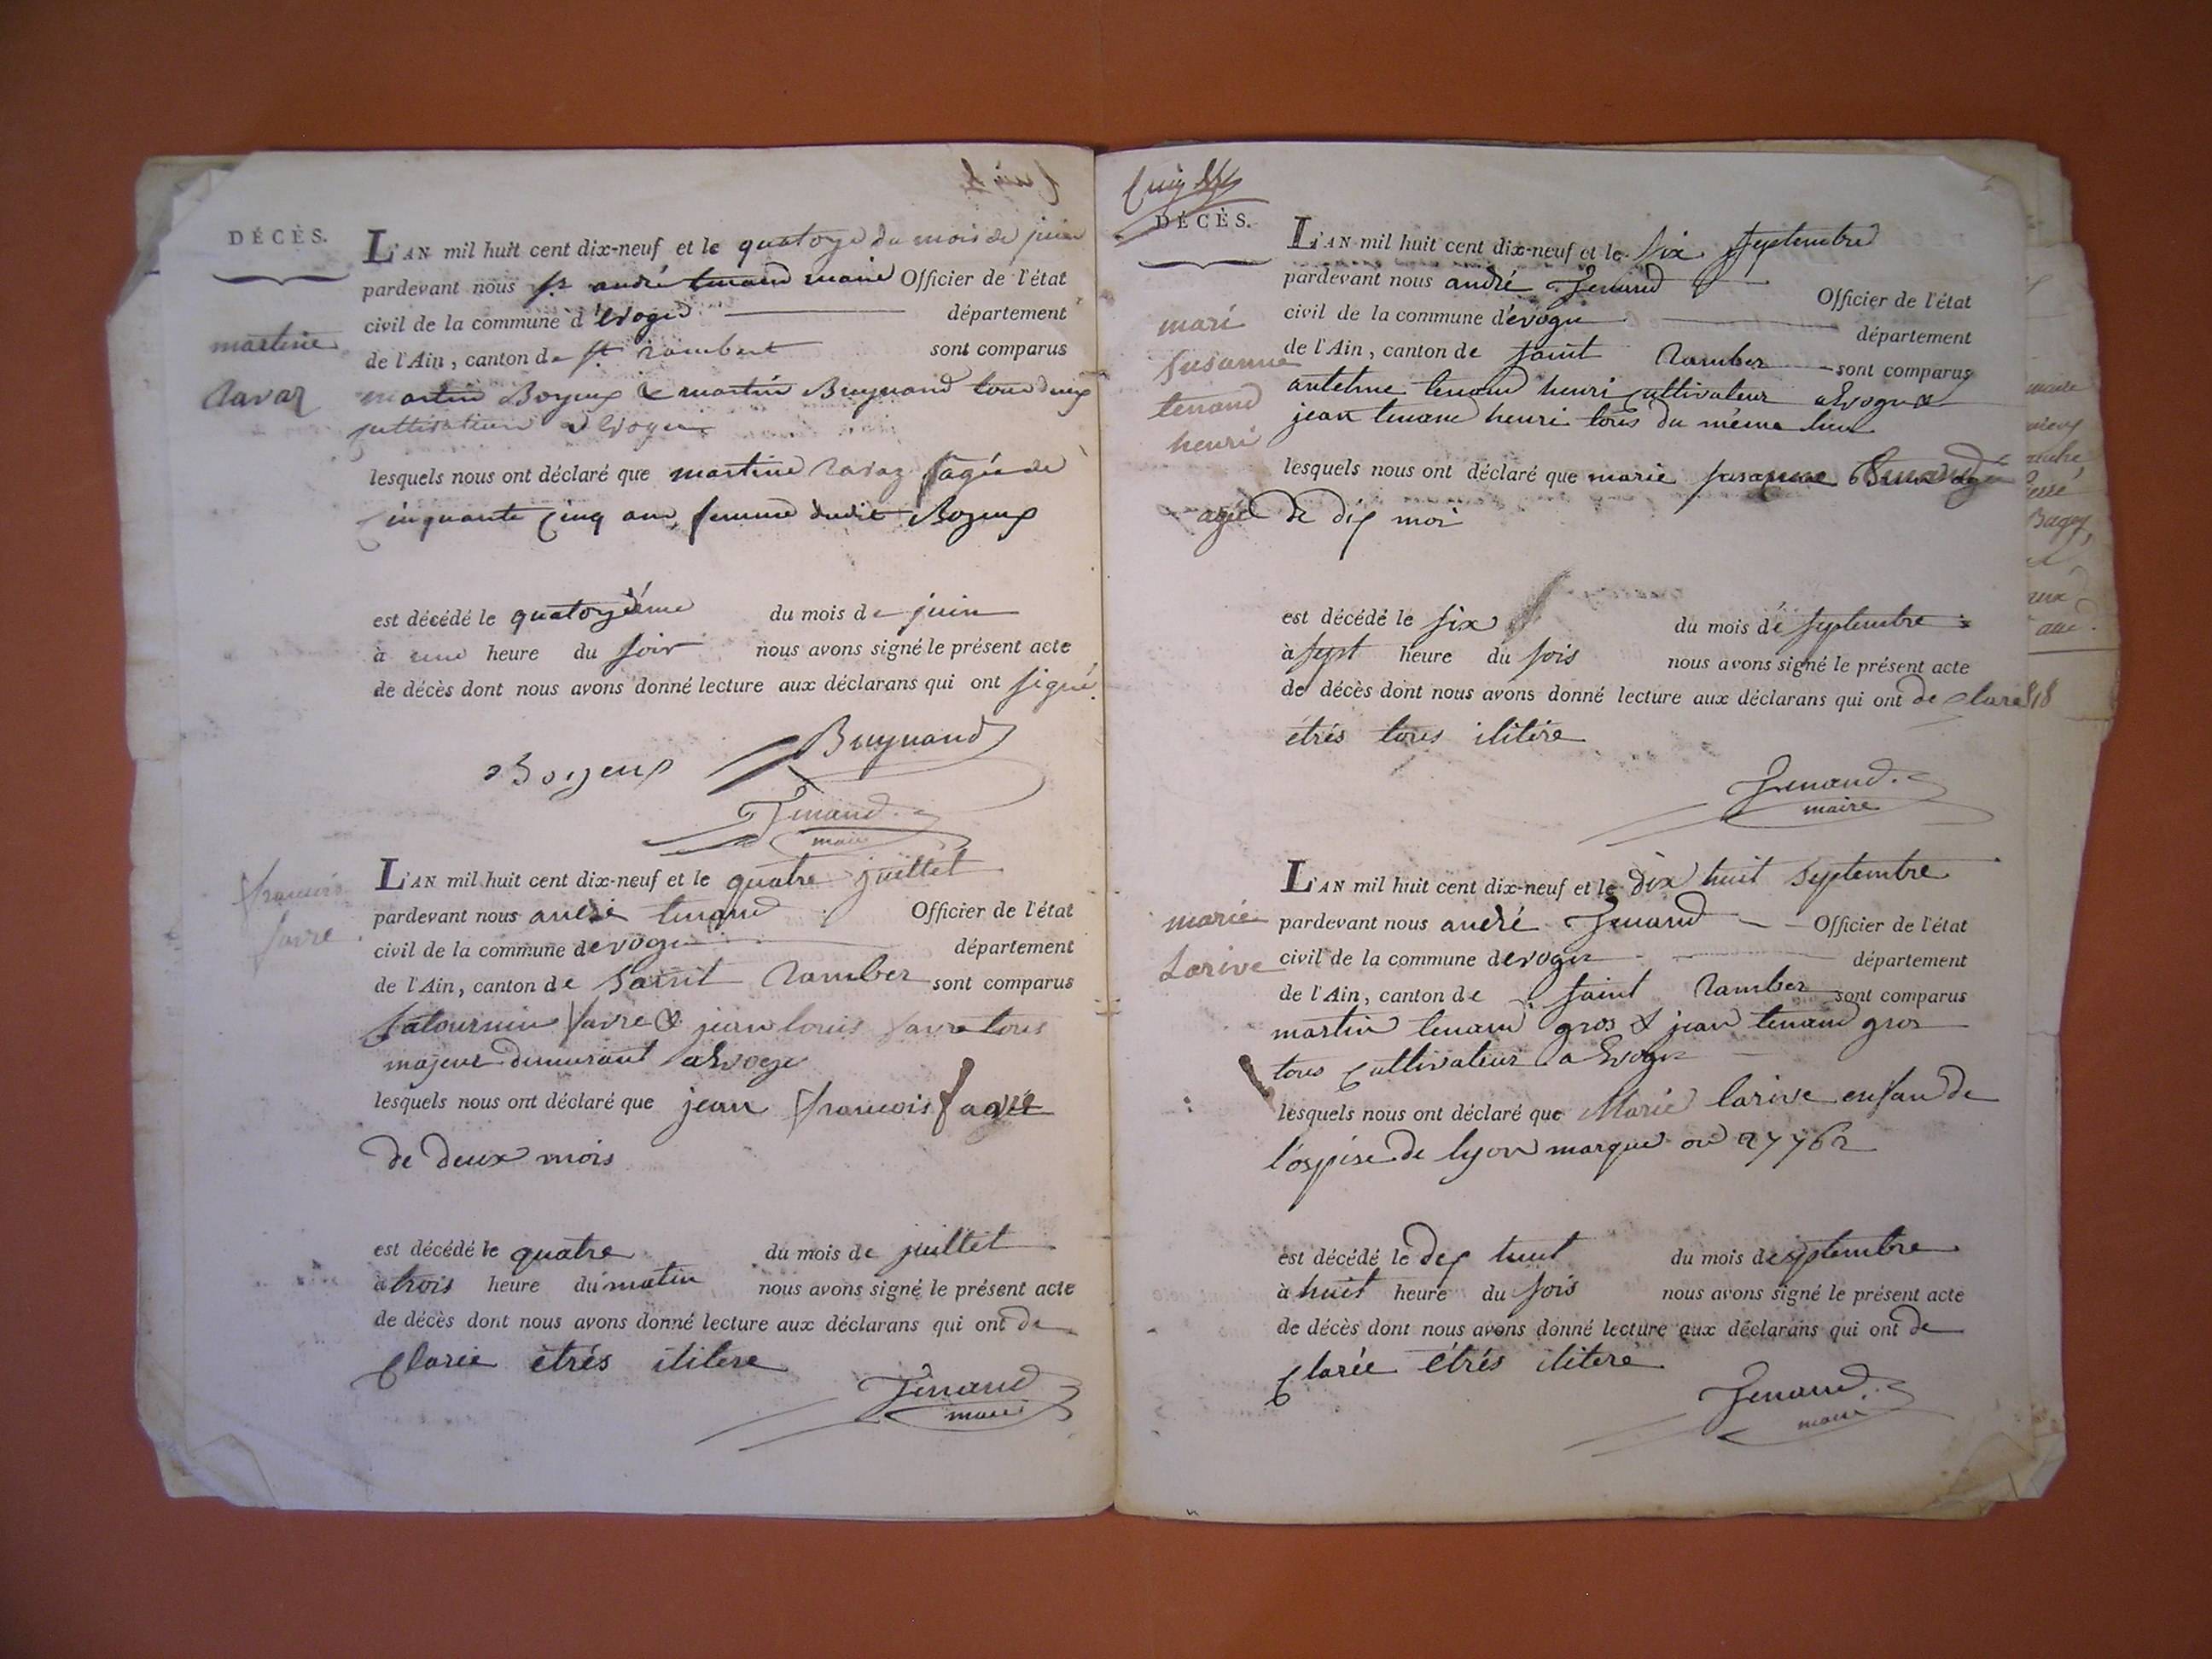 DÉCÈS.
martine
Ravaz
L'AN mil huit cent dix-neuf et le quatorze du mois de juin
pardevant nous sr andré tenand maire Officier de l'état
civil de la commune d'Evoge département
de l'Ain, canton de st rambert sont comparus
martin Bozeux & martin Bruynand tous deux
cultivateurs a Evoge
lesquels nous ont déclaré que martine ravaz agée de
cinquante cinq ans, femme dudit Bozeux
est décédé le quatorzième du mois de juin
à une heure du soir nous avons signé le présent acte
de décès dont nous avons donné lecture aux déclarans qui ont signé.
Bozeux Bruynand
Tenand
maire
françois
favre
L'AN mil huit cent dix-neuf et le quatre juillet
pardevant nous andré tenand Officier de l'état
civil de la commune devoge département
de l'Ain, canton de Saint Ramber sont comparus
Satournin favre & jean louis favre tous
majeur demurant a Evoge
lesquels nous ont déclaré que jean françois f agée
de deux mois
est décédé le quatre du mois de juillet
à trois heure du matin nous avons signé le présent acte
de décès dont nous avons donné lecture aux déclarans qui ont de
clarée étrés ilitere
Tenand
maire
DÉCÈS.
mari
susanne
tenand
henri
L'AN mil huit cent dix-neuf et le six septembre
pardevant nous andré Tenand Officier de l'état
civil de la commune d'evoge département
de l'Ain, canton de saint Ramber sont comparus
antelme tenand henri cultivateur a Evoge &
jean tenand henri tous du même lieu
lesquels nous ont déclaré que marie susanne
agée de dix moi
est décédé le six du mois de septembre
à sept heure du sois nous avons signé le présent acte
de décès dont nous avons donné lecture aux déclarans qui ont de claré
étrés tous ilitére
Tenand.
maire
marie
Larive
L'AN mil huit cent dix-neuf et le dix huit Septembre
pardevant nous andré Tenand Officier de l'état
civil de la commune devoge département
de l'Ain, canton de saint Ramber sont comparus
martin tenand gros & jean tenand gros
tous cultivateur a Evoge
lesquels nous ont déclaré que Marie larive enfan de
l'ospise de lyon marque 27762
est décédé le dix huit du mois de septembre
à huit heure du sois nous avons signé le présent acte
de décès dont nous avons donné lecture aux déclarans qui ont de
clarée étrés ilitere
Tenand.
maire